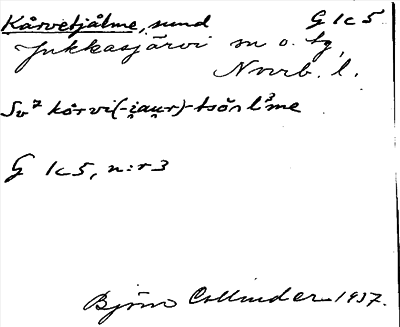 Kårvetjålme, sund G 1c 5
Jukkasjärvi sn o. tg,
Norrb. l.
Sv² kårvi(-i̯au̯r)-tsoͣlˀme
G 1c5, n:r 3
Björn Collinder 1937.